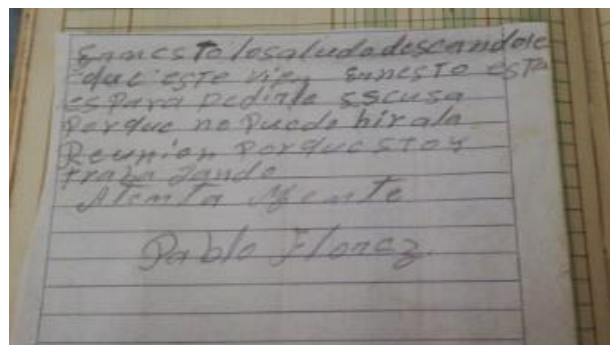 Ernesto losaludodeseandole
que este vien Ernesto esta
es para pedirle sscusa
Porque no Puedo hirala
Reunion Porquestoy
trabajando
Atenta Mente
Pablo Florez